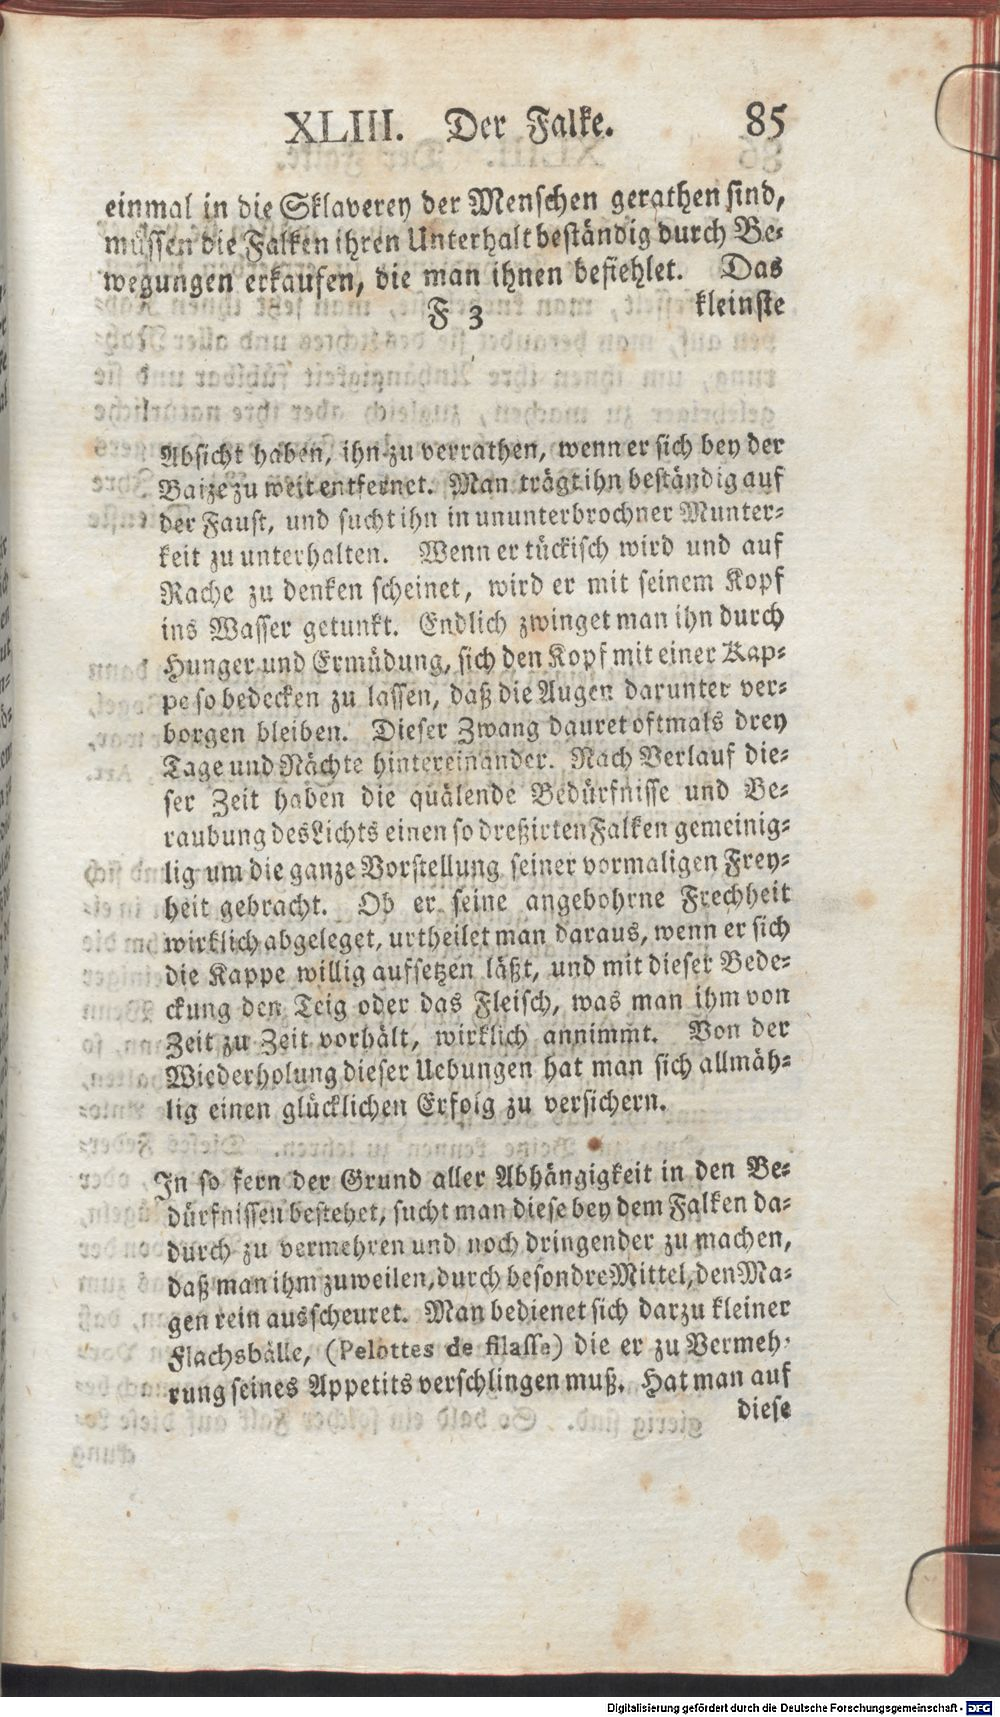 XLIII. Der Falke. 85
einmal in die Sklaverey der Menschen gerathen sind,
müssen die Falken ihren Unterhalt beständig durch Be-
wegungen erkaufen, die man ihnen befiehlet. Das
F 3 kleinste
Absicht haben, ihn zu verrathen, wenn er sich bey der
Baize zu weit entfernet. Man trägt ihn beständig auf
der Faust, und sucht ihn in ununterbrochner Munter-
keit zu unterhalten. Wenn er tückisch wird und auf
Rache zu denken scheinet, wird er mit seinem Kopf
ins Wasser getunkt. Endlich zwinget man ihn durch
Hunger und Ermüdung, sich den Kopf mit einer Kap-
pe so bedecken zu lassen, daß die Augen darunter ver-
borgen bleiben. Dieser Zwang dauret oftmals drey
Tage und Nächte hintereinander. Nach Verlauf die-
ser Zeit haben die quälende Bedürfnisse und Be-
raubung des Lichts einen so dreßirten Falken gemeinig-
lig um die ganze Vorstellung seiner vormaligen Frey-
heit gebracht. Ob er seine angebohrne Frechheit
wirklich abgeleget, urtheilet man daraus, wenn er sich
die Kappe willig aufsetzen läßt, und mit dieser Bede-
ckung den Teig oder das Fleisch, was man ihm von
Zeit zu Zeit vorhält, wirklich annimmt. Von der
Wiederholung dieser Uebungen hat man sich allmäh-
lig einen glücklichen Erfolg zu versichern.
In so fern der Grund aller Abhängigkeit in den Be-
dürfnissen bestehet, sucht man diese bey dem Falken da-
durch zu vermehren und noch dringender zu machen,
daß man ihm zuweilen, durch besondre Mittel, den Ma-
gen rein ausscheuret. Man bedienet sich darzu kleiner
Flachsbälle, (Pelottes de filasse) die er zu Vermeh-
rung seines Appetits verschlingen muß. Hat man auf
diese
Digitalisierung gefördert durch die Deutsche Forschungsgemeinschaft - DFG